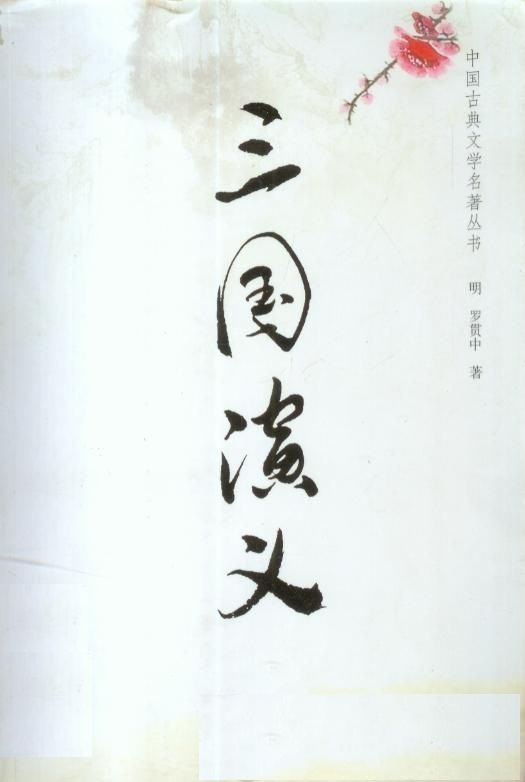 中国古典文学名著丛书
明 罗贯中 著
三国演义